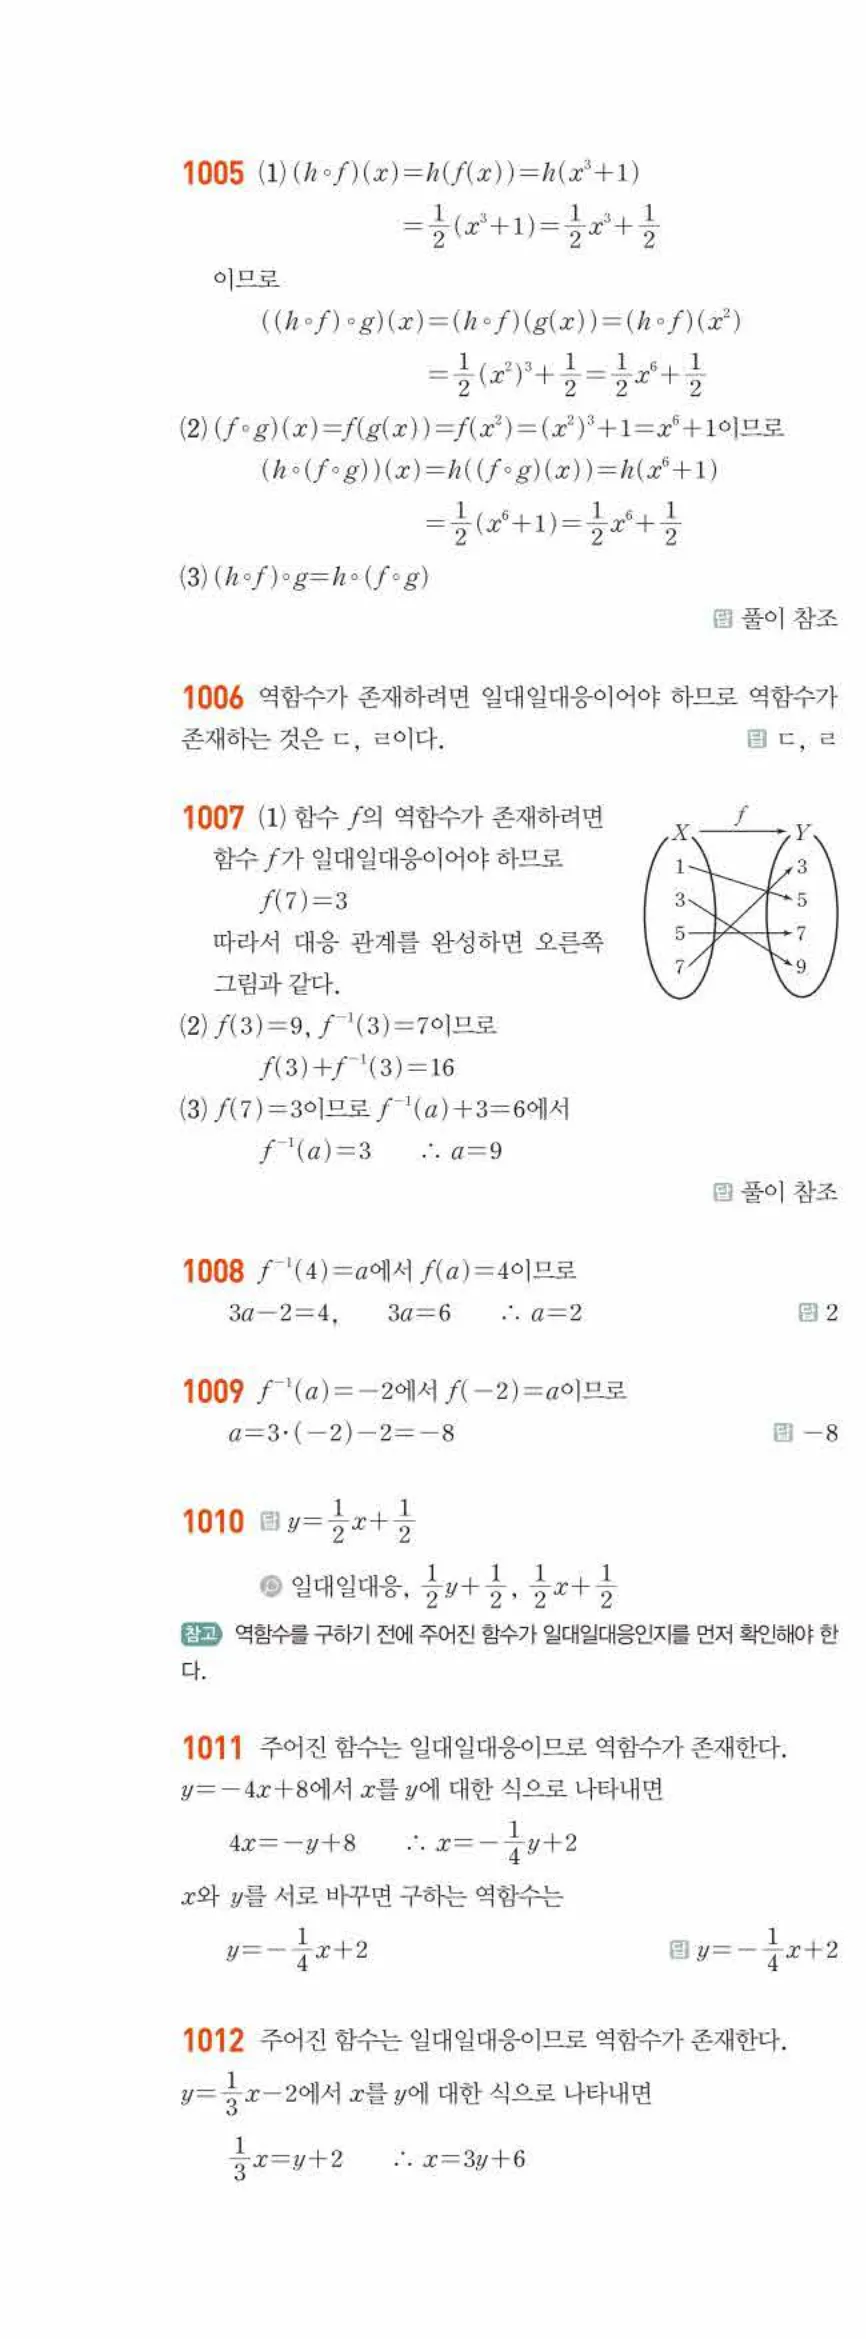 1005 (1) (h∘f)(x)=h(f(x))=h(x³+1)
=1/2(x³+1)=1/2x³+1/2
이므로
((h∘f)∘g)(x)=(h∘f)(g(x))=(h∘f)(x²)
=1/2(x²)³+1/2=1/2x⁶+1/2
(2) (f∘g)(x)=f(g(x))=f(x²)=(x²)³+1=x⁶+1이므로
(h∘(f∘g))(x)=h((f∘g)(x))=h(x⁶+1)
=1/2(x⁶+1)=1/2x⁶+1/2
(3) (h∘f)∘g=h∘(f∘g)
답 풀이 참조
1006 역함수가 존재하려면 일대일대응이어야 하므로 역함수가
존재하는 것은 ㄷ, ㄹ이다. 답 ㄷ, ㄹ
1007 (1) 함수 f의 역함수가 존재하려면
함수 f가 일대일대응이어야 하므로
f(7)=3
따라서 대응 관계를 완성하면 오른쪽
그림과 같다.
f
X Y
1 3
3 5
5 7
7 9
(2) f(3)=9, f⁻¹(3)=7이므로
f(3)+f⁻¹(3)=16
(3) f(7)=3이므로 f⁻¹(a)+3=6에서
f⁻¹(a)=3 ∴ a=9
답 풀이 참조
1008 f⁻¹(4)=a에서 f(a)=4이므로
3a-2=4, 3a=6 ∴ a=2 답 2
1009 f⁻¹(a)=-2에서 f(-2)=a이므로
a=3·(-2)-2=-8 답 -8
1010 답 y=1/2x+1/2
일대일대응, 1/2y+1/2, 1/2x+1/2
참고 역함수를 구하기 전에 주어진 함수가 일대일대응인지를 먼저 확인해야 한
다.
1011 주어진 함수는 일대일대응이므로 역함수가 존재한다.
y=-4x+8에서 x를 y에 대한 식으로 나타내면
4x=-y+8 ∴ x=-1/4y+2
x와 y를 서로 바꾸면 구하는 역함수는
y=-1/4x+2 답 y=-1/4x+2
1012 주어진 함수는 일대일대응이므로 역함수가 존재한다.
y=1/3x-2에서 x를 y에 대한 식으로 나타내면
1/3x=y+2 ∴ x=3y+6